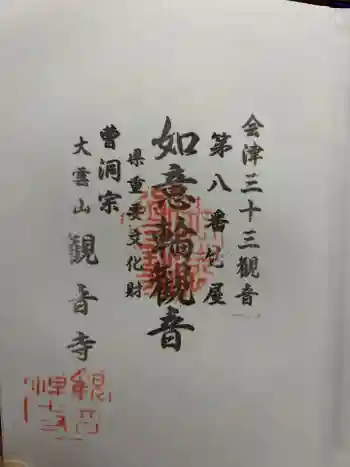 会津三十三観音
第八番 包屋
如意輪観音
県重要文化財
曹洞宗
大雲山
観音寺